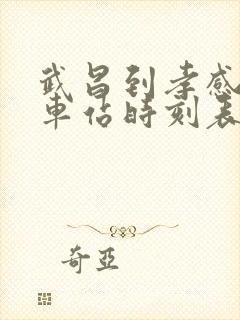 武昌到孝感
車站時刻表
奇亞